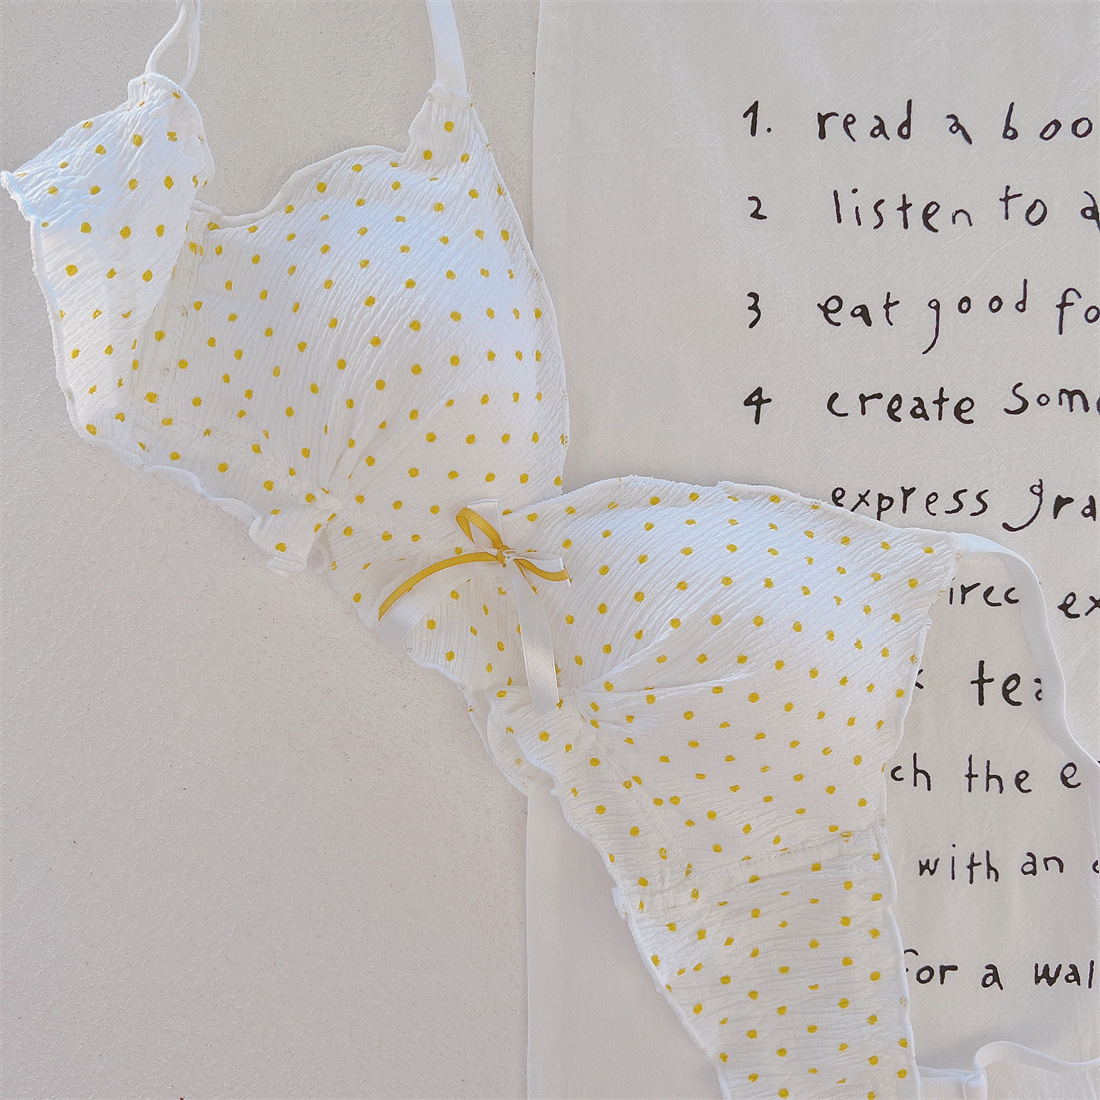 1. read a boo
2 listen to a
3 eat good fo
4 create som
express gra
irec ex
tea
ch the e
with an
for a wal